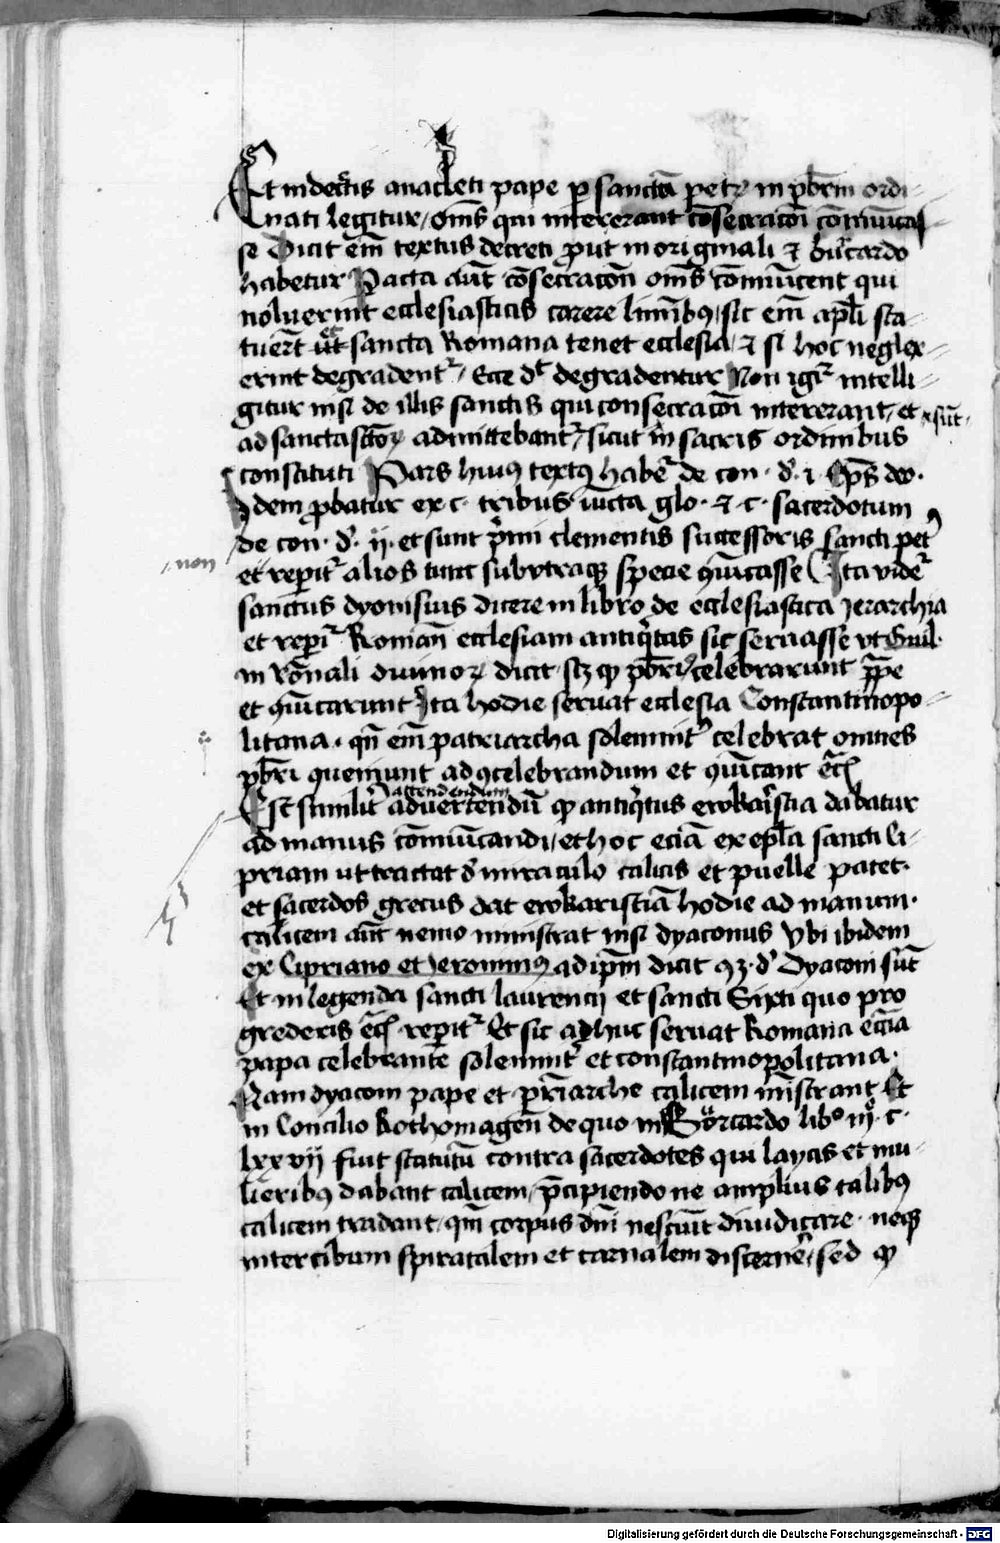 Et in decretis anacleti pape per sanctum petrum in presbiterum ordi-
nati legitur / omnes qui intererant consecracioni communicas-
se Dicit enim textus decreti prout in originali et burcardo
habetur Pacta autem consecracione omnes communicent qui
noluerint ecclesiasticis carere liminibus / sic enim apostoli sta-
tuerunt et sancta Romana tenet ecclesia / et si hoc neglex-
erint degradentur / Ecce dicit degradentur Non igitur intelli-
gitur nisi de illis sanctis qui consecracioni intererant / et
sunt
ad sancta sanctorum admittebantur / sicut in sacris ordinibus
constituti Pars huius textus habetur de con. d. i. Episcopus deo.
Idem probatur ex c. tribus iuncta glo. et c. sacerdotum
de con. d. ij. et sunt primi clementis successoris sancti petri
non
et reperitur alios tunc sub utraque specie communicasse Ita videtur
sanctus dyonisius dicere in libro de ecclesiastica Jerarchia
et reperitur Romanam ecclesiam antiquitus sic seruasse vt Guil.
in racionali diuinorum dicit. scilicet quod presbiteri concelebrarunt pape
et communicarunt Ita hodie seruat ecclesia Constantinopo-
litana. quando enim patriarcha solemniter celebrat omnes
presbiteri queniunt ad concelebrandum et communicant etc
attendendum
Est similiter aduertendum quod antiquitus ewkaristia dabatur
ad manus communicandi / et hoc eciam ex epistola sancti Ci-
priani ut tractat de miraculo calicis et puelle patet.
et sacerdos grecus dat ewkaristiam hodie ad manum.
calicem autem nemo ministrat nisi dyaconus Vbi ibidem
ex Cipriano et Jeronimus ad ipsum dicit 93. d. Dyaconi sunt
Et in legenda sancti laurencij et sancti Sixti quo pro
grederis etc reperitur Et sic adhuc seruat Romana ecclesia
papa celebrante solemniter et constantinopolitana.
Nam dyaconi pape et patriarche calicem ministrant Et
in Concilio Rothomagensi de quo in Borcardo libro iij. c.
lxxvij fuit statutum contra sacerdotes qui laycis et mu-
lieribus dabant calicem / precipiendo ne amplius talibus
calicem tradant / quoniam corpus domini nesciunt diiudicare. neque
inter cibum spiritalem et carnalem discernere / sed quod
Digitalisierung gefördert durch die Deutsche Forschungsgemeinschaft - DFG